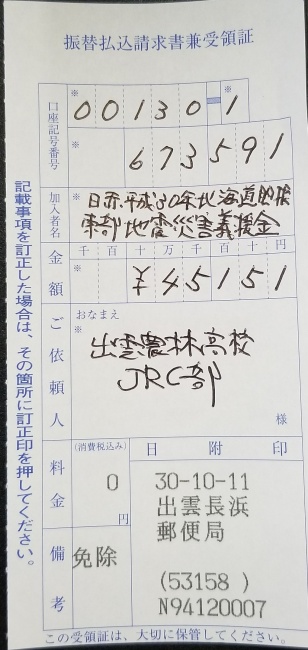 振替払込請求書兼受領証
口座記号番号
※ 00130-1
※ 673591
加入者名
※ 日赤平成30年北海道胆振
東部地震災害義援金
金額
千 百 十 万 千 百 十 円
※ ¥45151
ご依頼人
おなまえ
※
出雲農林高校
JRC部
様
料金
(消費税込み)
0
円
備考
免除
日附印
30-10-11
出雲長浜
郵便局
(53158 )
N94120007
記載事項を訂正した場合は、その箇所に訂正印を押してください。
この受領証は、大切に保管してください。